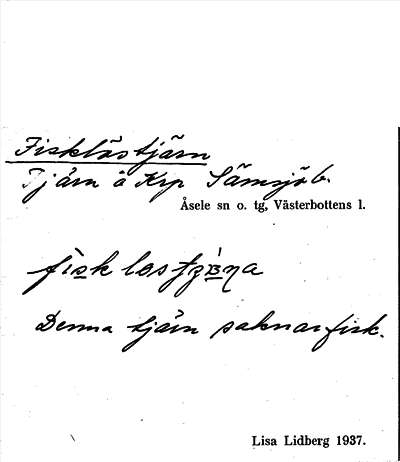 Fisklöstjärn
Tjärn å Krp Sämsjöb.
Åsele sn o. tg, Västerbottens l.
Denna tjärn saknar fisk.
Lisa Lidberg 1937.